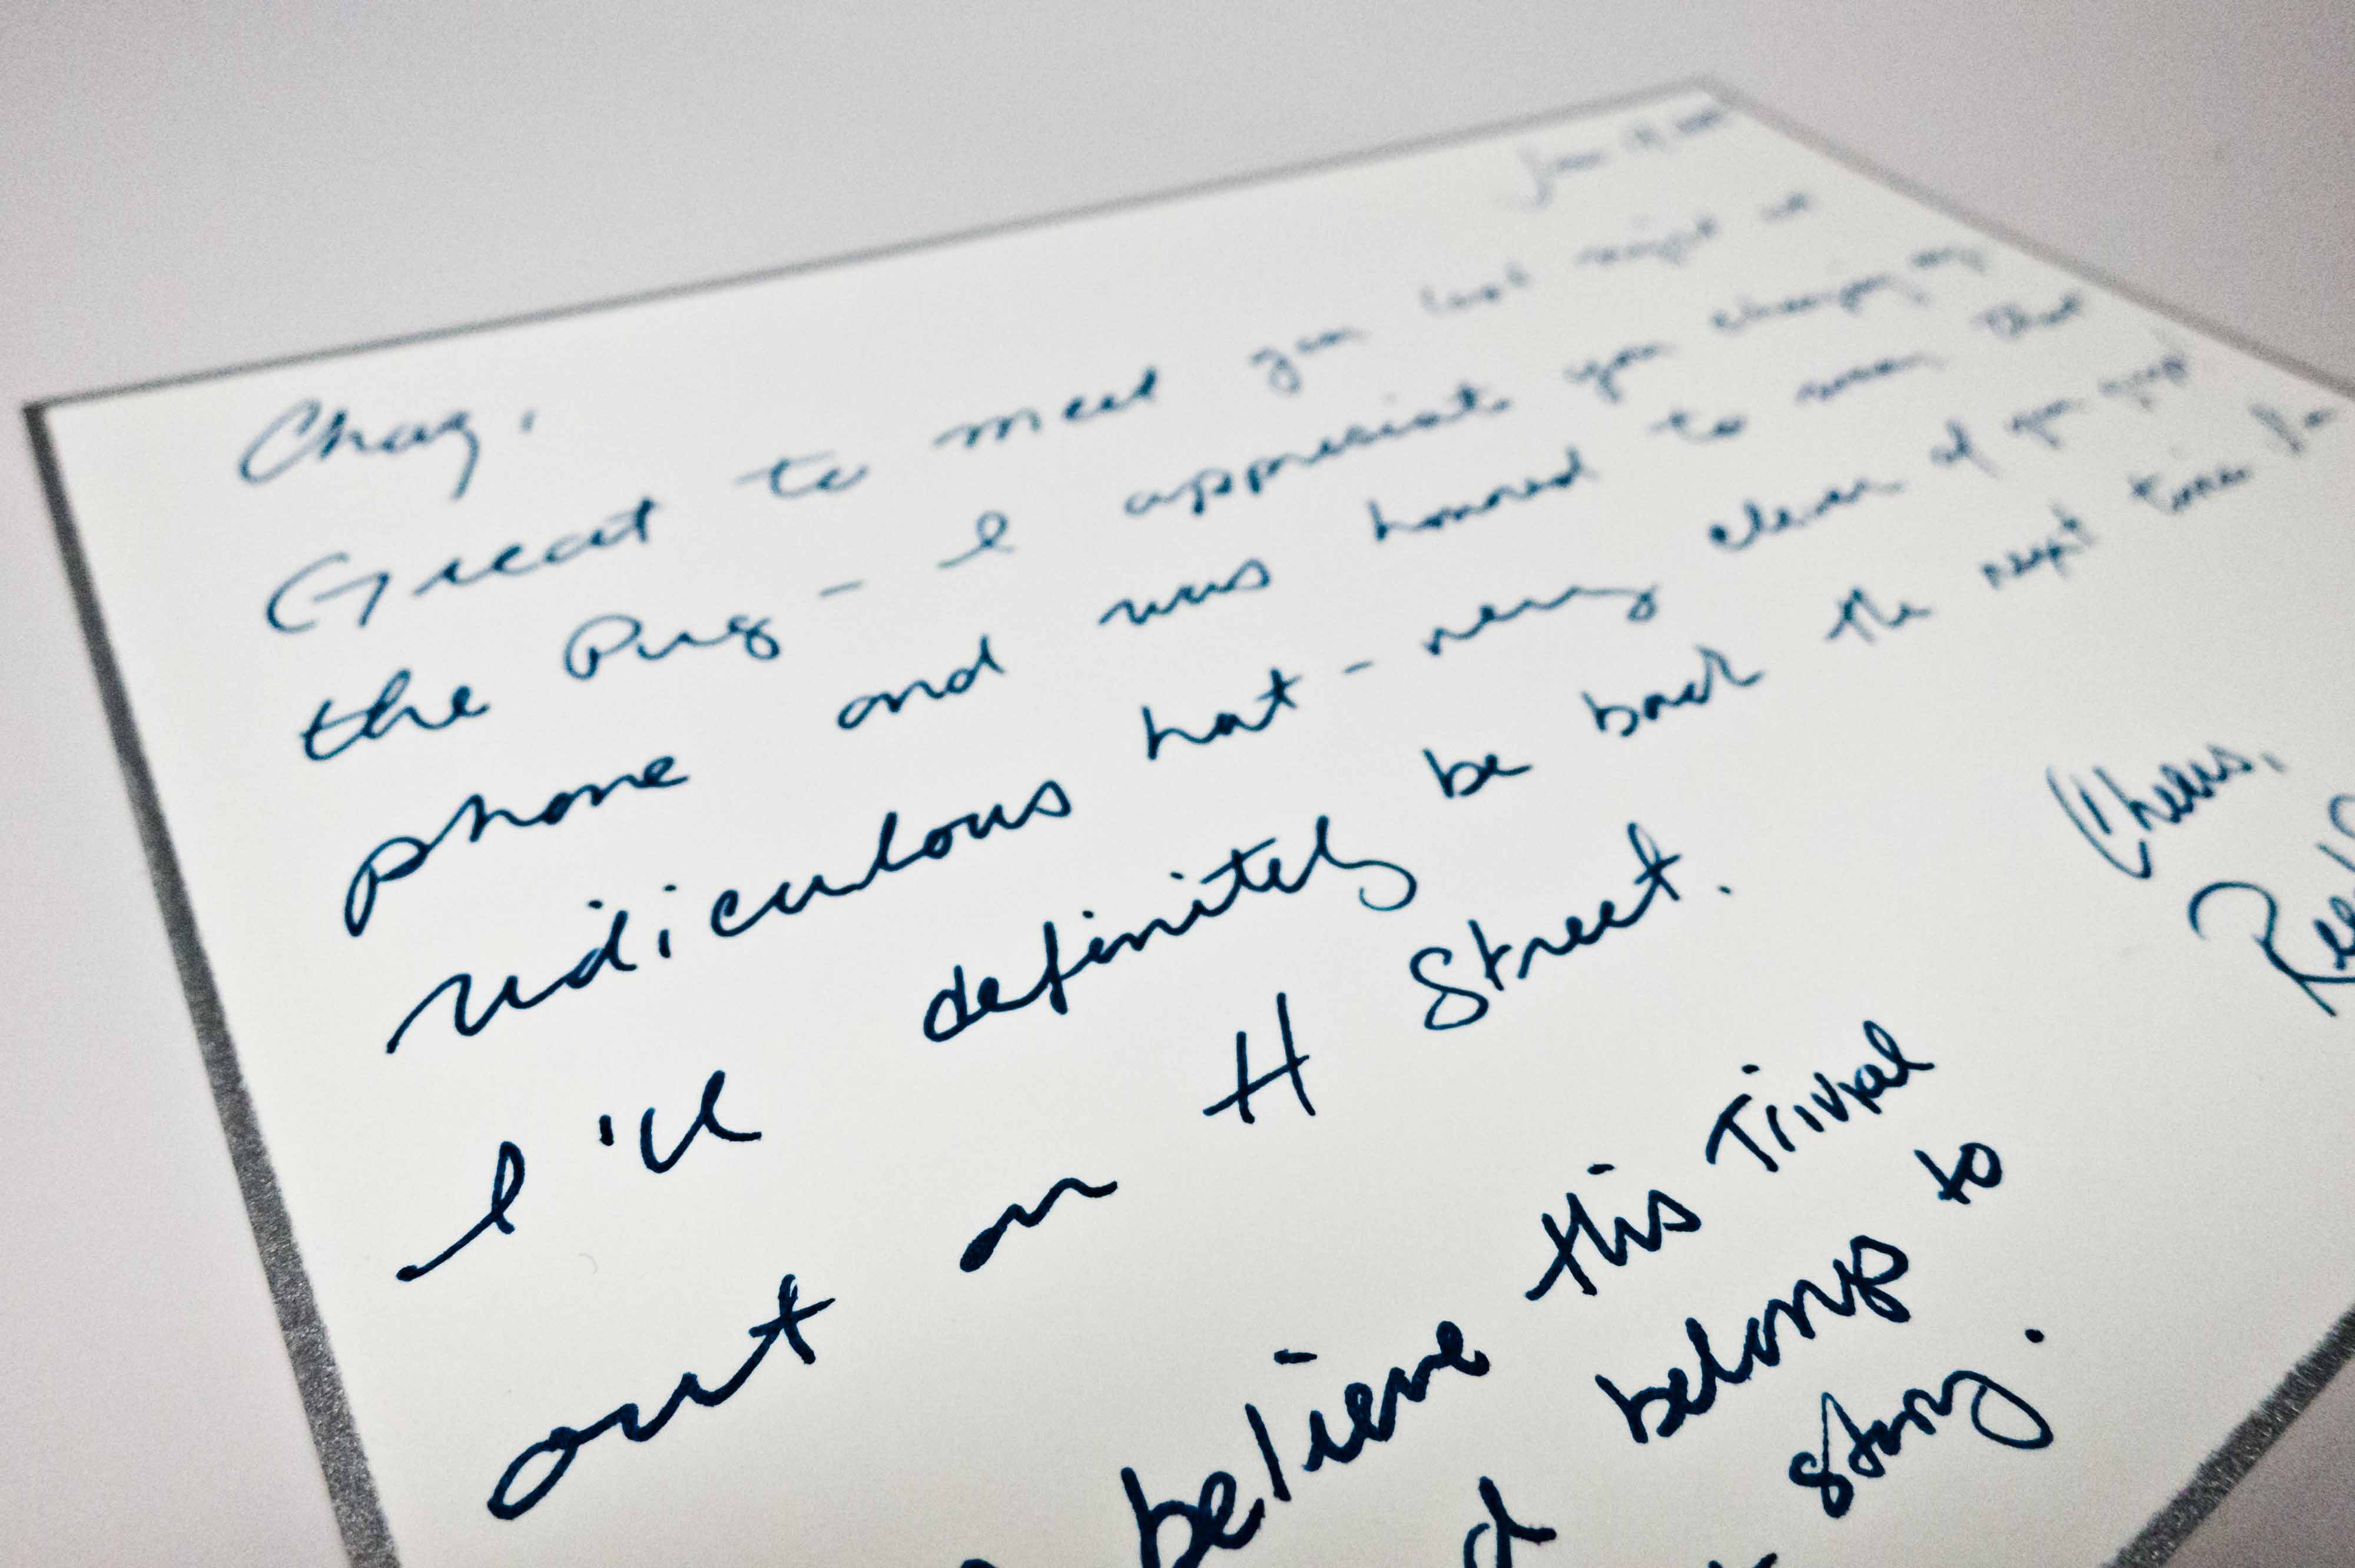 Chaz,
Great to meet you last night at
the Pug - I appreciate you charging my
phone and was honored to wear that
ridiculous hat - very clever of you guys!
I'll definitely be back the next time I'm
out on H Street.
Cheers,
believe this Trivial
belongs to
story.